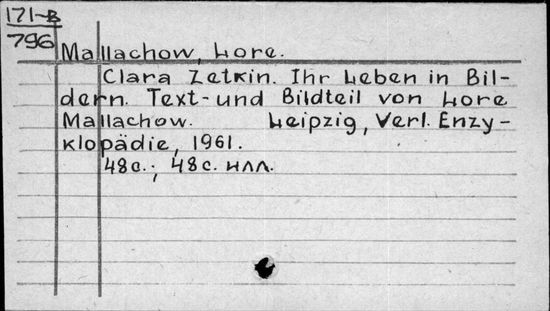 171-B
796
Mallachow, Lore.
Clara Zetkin. Ihr Leben in Bil-
dern. Text- und Bildteil von Lore
Mallachow. Leipzig, Verl. Enzy-
klopädie, 1961.
48 с.; 48 с. илл.